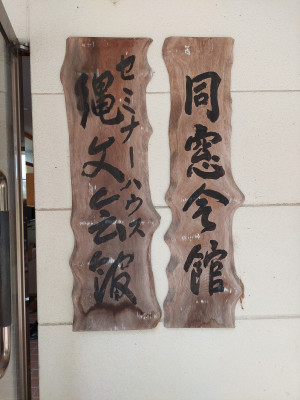 同窓会館
セミナーハウス
縄文会館